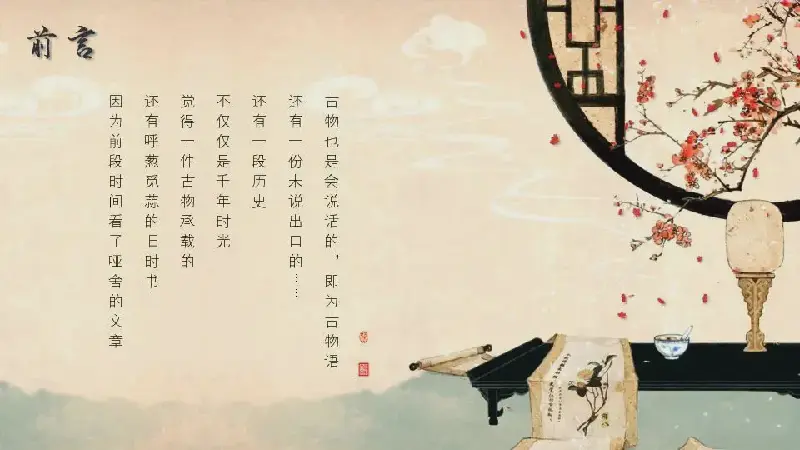 前言
因为前段时间看了哑舍的文章
还有呼葱觅蒜的旧时书
觉得一件古物承载的
不仅仅是千年时光
还有一段历史
还有一份未说出口的……
古物也是会说话的，即为古物语